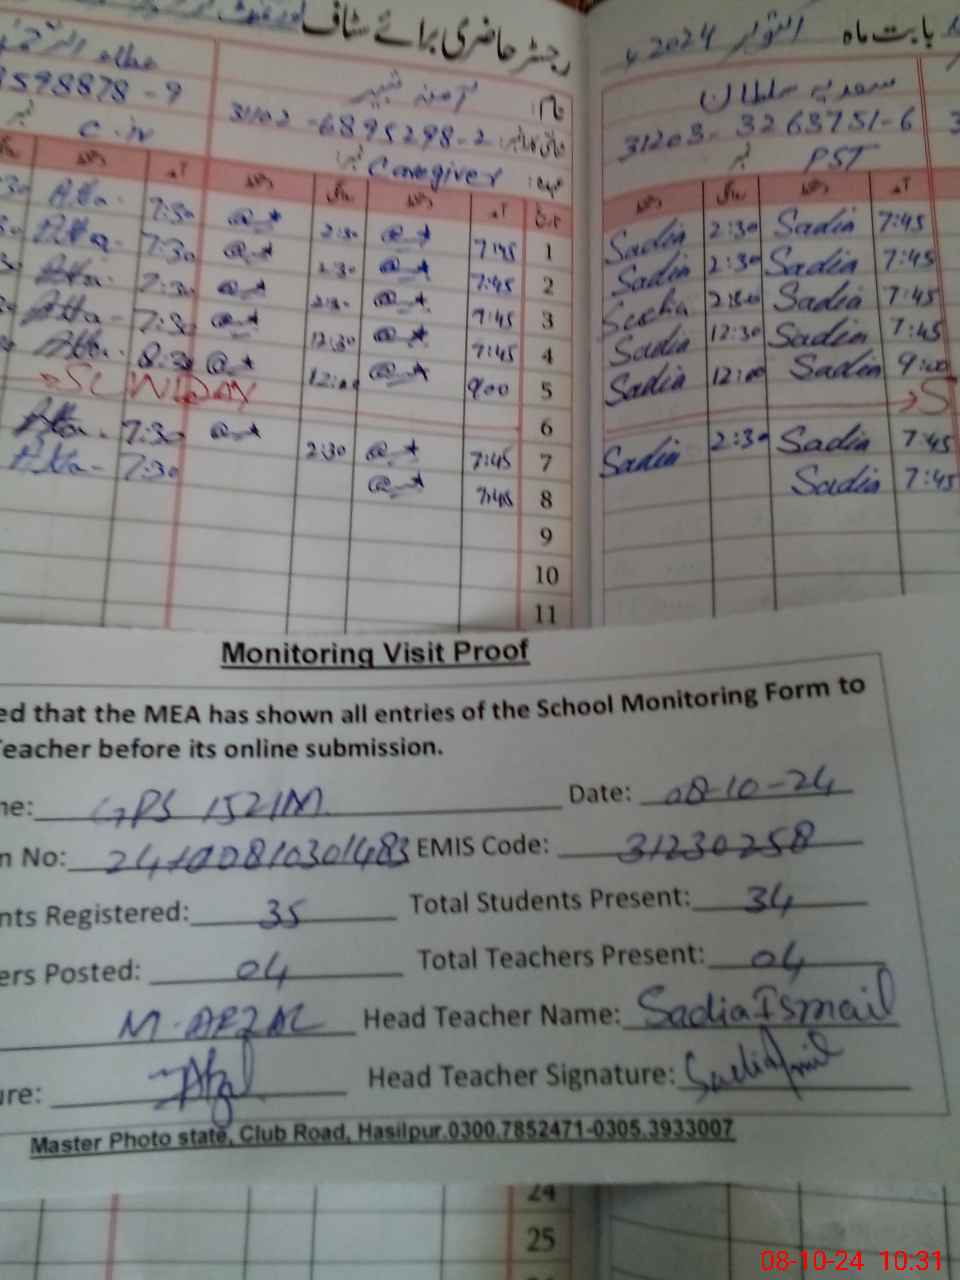 رجسٹر حاضری برائے سٹاف
بابت ماہ اکتوبر 2024ء
598878-9
C.IV
نام: آمنہ شبیر
31102-6895298-2
عہدہ: Caregiver
سعدیہ سلطان
31203-3263751-6
PST
Atta. 7:30 2:30 7:45 1
Atta- 7:30 2:30 7:45 2
Atta. 7:30 2:30 7:45 3
Atta- 7:30 12:30 7:45 4
Atta. 8:30 12:00 9:00 5
SUNDAY 6
Atta. 7:30 2:30 7:45 7
Atta- 7:30 7:45 8
9
10
11
Sadia 2:30 Sadia 7:45
Sadia 2:30 Sadia 7:45
Sadia 2:30 Sadia 7:45
Sadia 12:30 Sadia 7:45
Sadia 12:00 Sadia 9:00
S
Sadia 2:30 Sadia 7:45
Sadia 7:45
Monitoring Visit Proof
ed that the MEA has shown all entries of the School Monitoring Form to
Teacher before its online submission.
ne: GPS 152/M Date: 08-10-24
n No: EMIS Code: 31230258
nts Registered: 35 Total Students Present: 34
ers Posted: 04 Total Teachers Present: 04
M. AFZAL Head Teacher Name: Sadia Ismail
ure: Afzal Head Teacher Signature: Sadia Ismail
Master Photo state, Club Road, Hasilpur.0300.7852471-0305.3933007
24
25
08-10-24 10:31